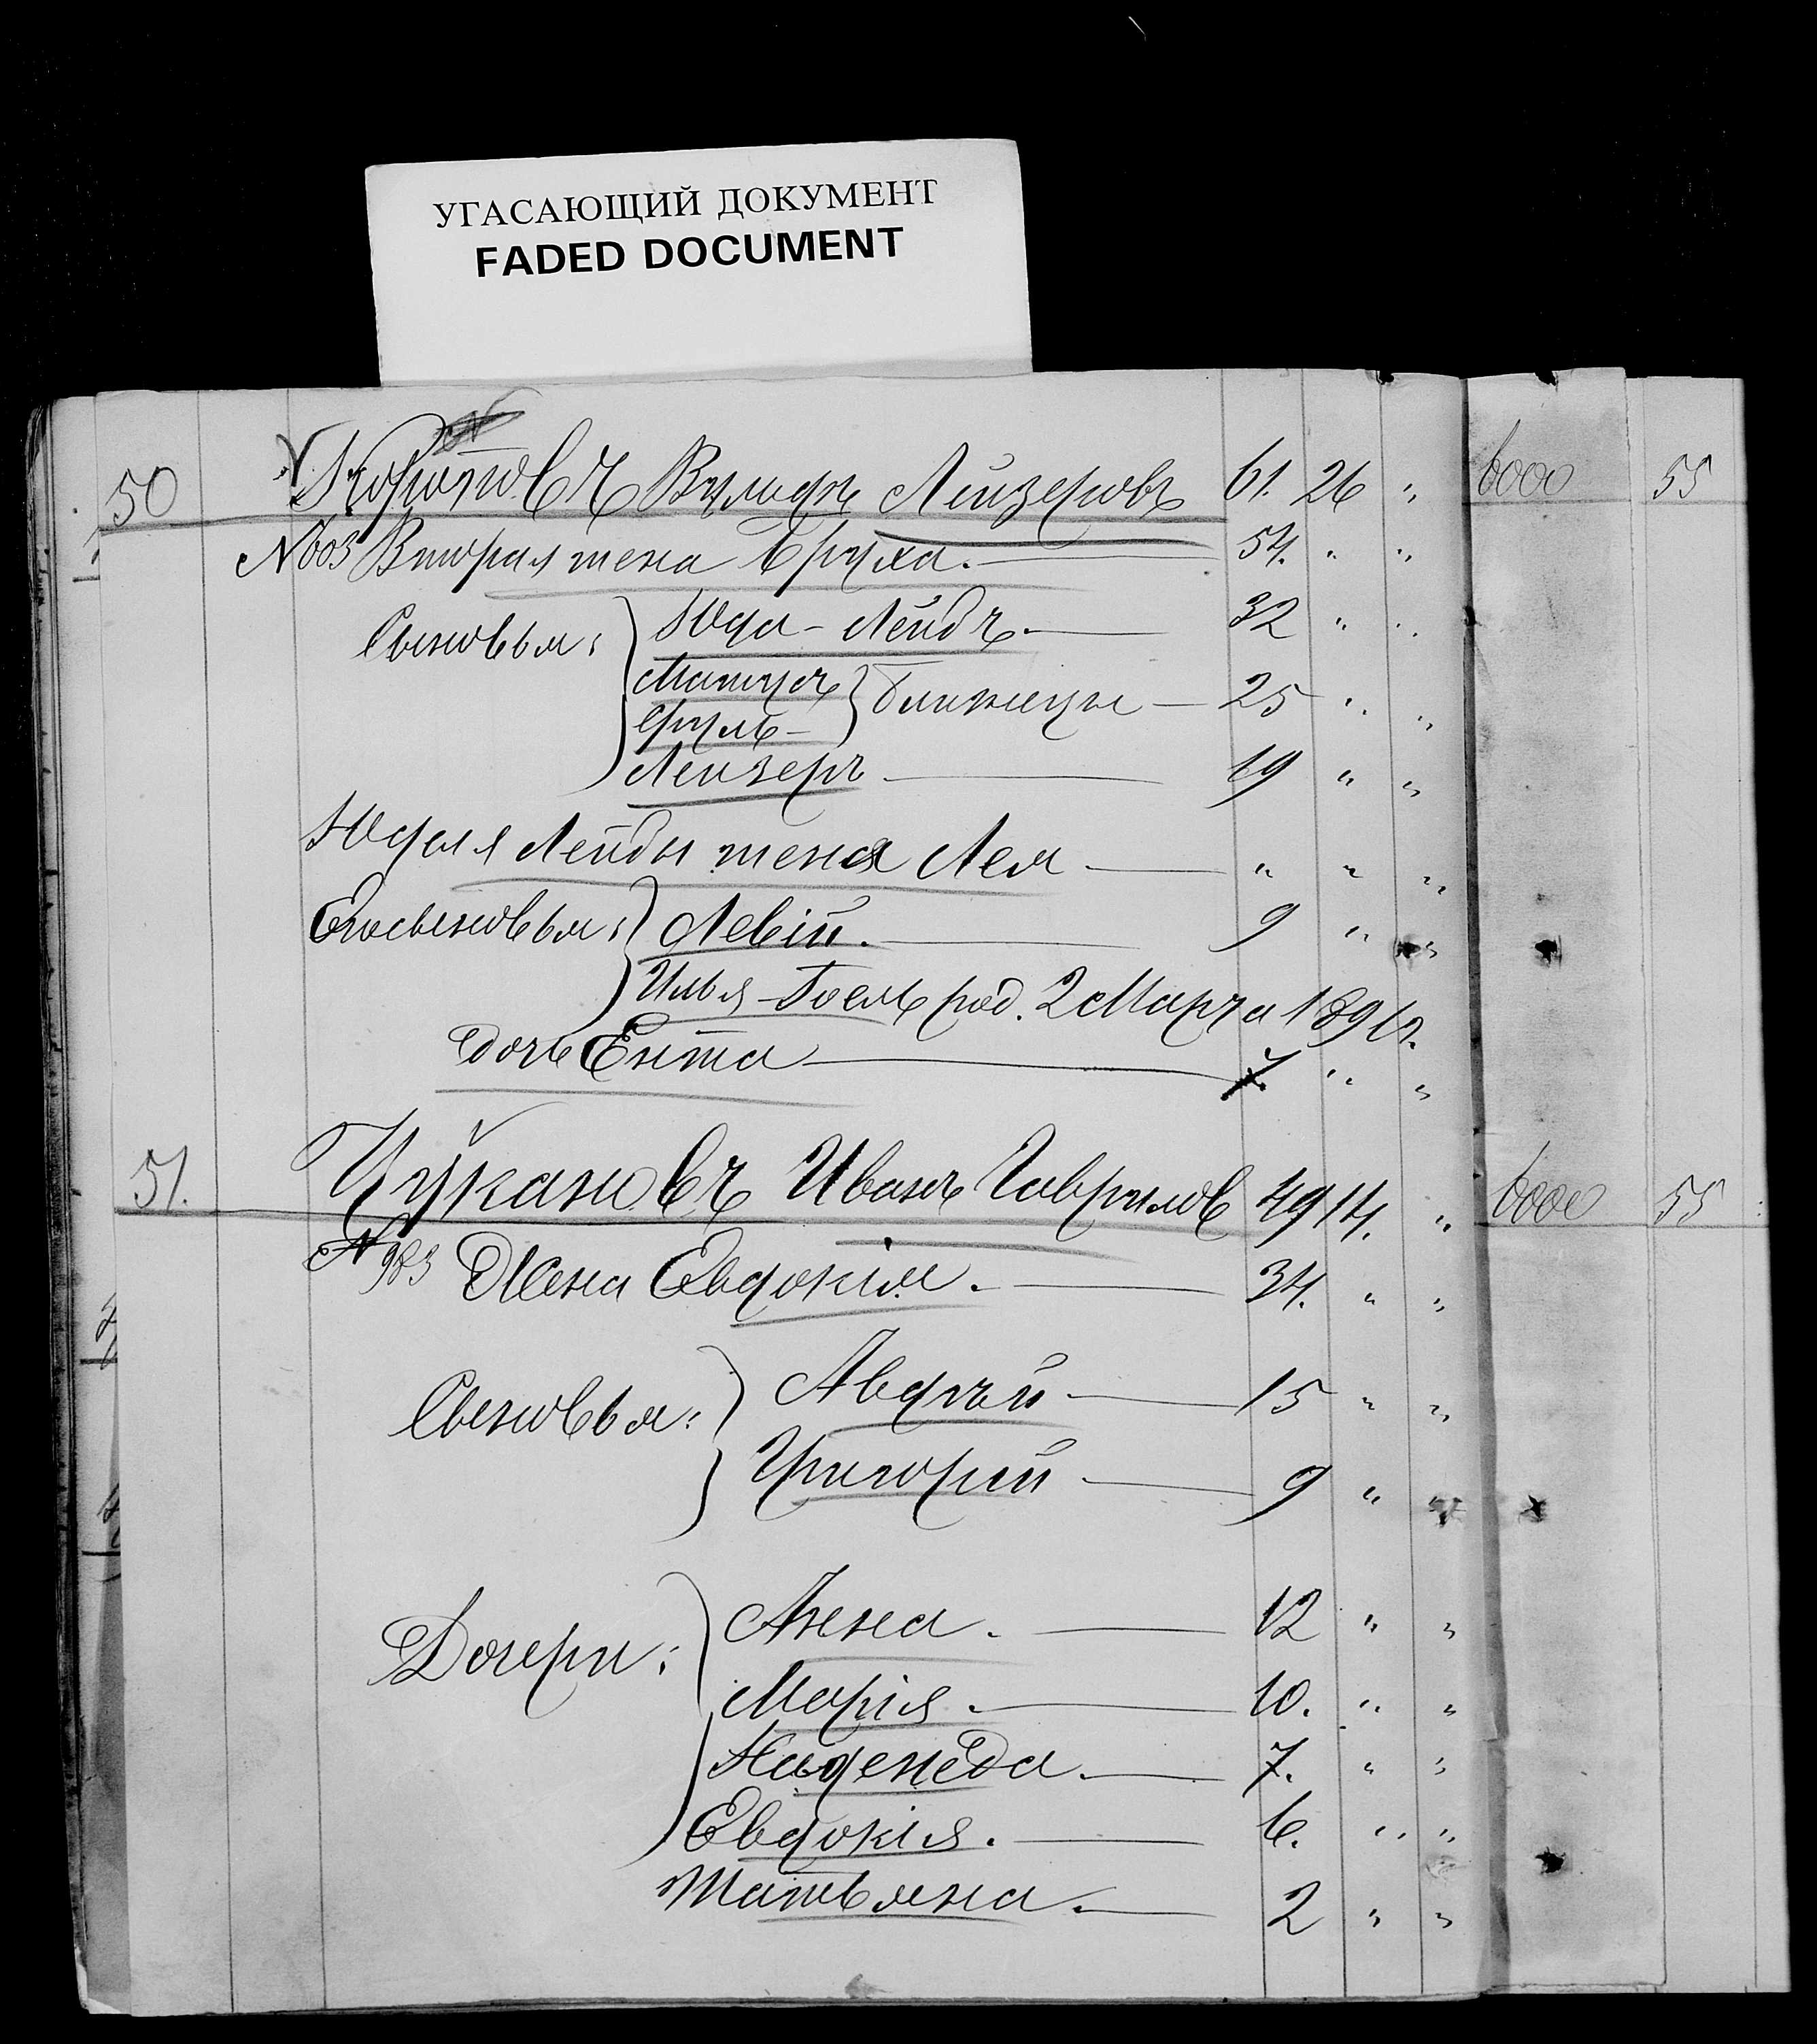 УГАСАЮЩИЙ ДОКУМЕНТ
FADED DOCUMENT
50 Вульфъ Лейзеровъ 61. 26 " 6000 55
N 603 Вторая жена Бруха. 54. " "
Сыновья: Юда-Лейбъ. 32 " "
Матусъ
Сруль - } близнецы - 25 " "
Лейзеръ 19 " "
Юдаля Лейбы жена Лея " " "
Его сыновья: Левій. 9 " "
Илья-Іоель род. 2 Марта 1891г.
дочь Ента 7. " "
51. Цукановъ Иванъ Гаврилов 49 14. " 6000 55
N 983 Жена Евдокія. 34. " "
Сыновья: Авдѣй 15 " "
Григорій 9 " "
Дочери: Анна. 12 " "
Марія. 10. " "
Надежда. 7. " "
Евдокія. 6. " "
Татьяна. 2 " "